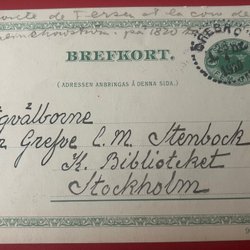 de Fersen et la cour de
på 1820
ÖREBRO
BREFKORT.
(ADRESSEN ANBRINGAS Å DENNA SIDA.)
gvälborne
Grefve C. M. Stenbock
K. Biblioteket
Stockholm